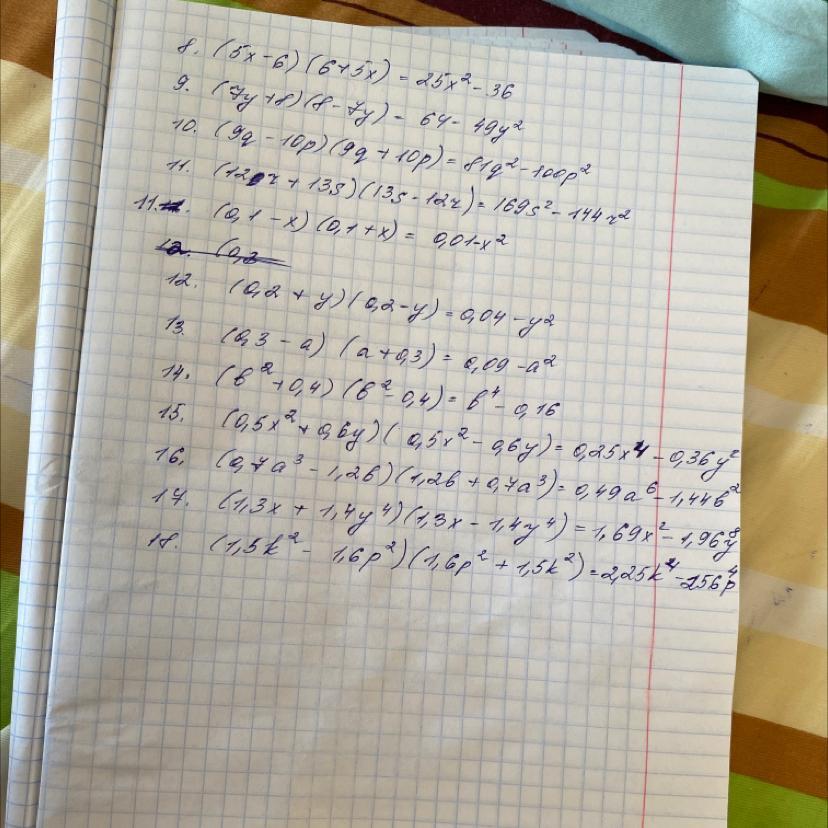 8. (5x-6)(6+5x) = 25x² - 36
9. (7y+8)(8-7y) = 64 - 49y²
10. (9q - 10p)(9q + 10p) = 81q² - 100p²
11. (12r + 13s)(13s - 12r) = 169s² - 144r²
11. (0,1 - x)(0,1 + x) = 0,01-x²
12. (0,2
12. (0,2 + y)(0,2-y) = 0,04 - y²
13. (0,3 - a) (a+0,3) = 0,09-a²
14. (b² + 0,4)(b² - 0,4) = b⁴ - 0,16
15. (0,5x² + 0,6y)(0,5x² - 0,6y) = 0,25x⁴ - 0,36y²
16. (0,7a³ - 1,2b)(1,2b + 0,7a³) = 0,49a⁶ - 1,44b²
17. (1,3x + 1,4y⁴)(1,3x - 1,4y⁴) = 1,69x² - 1,96y⁸
18. (1,5k² - 1,6p²)(1,6p² + 1,5k²) = 2,25k⁴ - 256p⁴